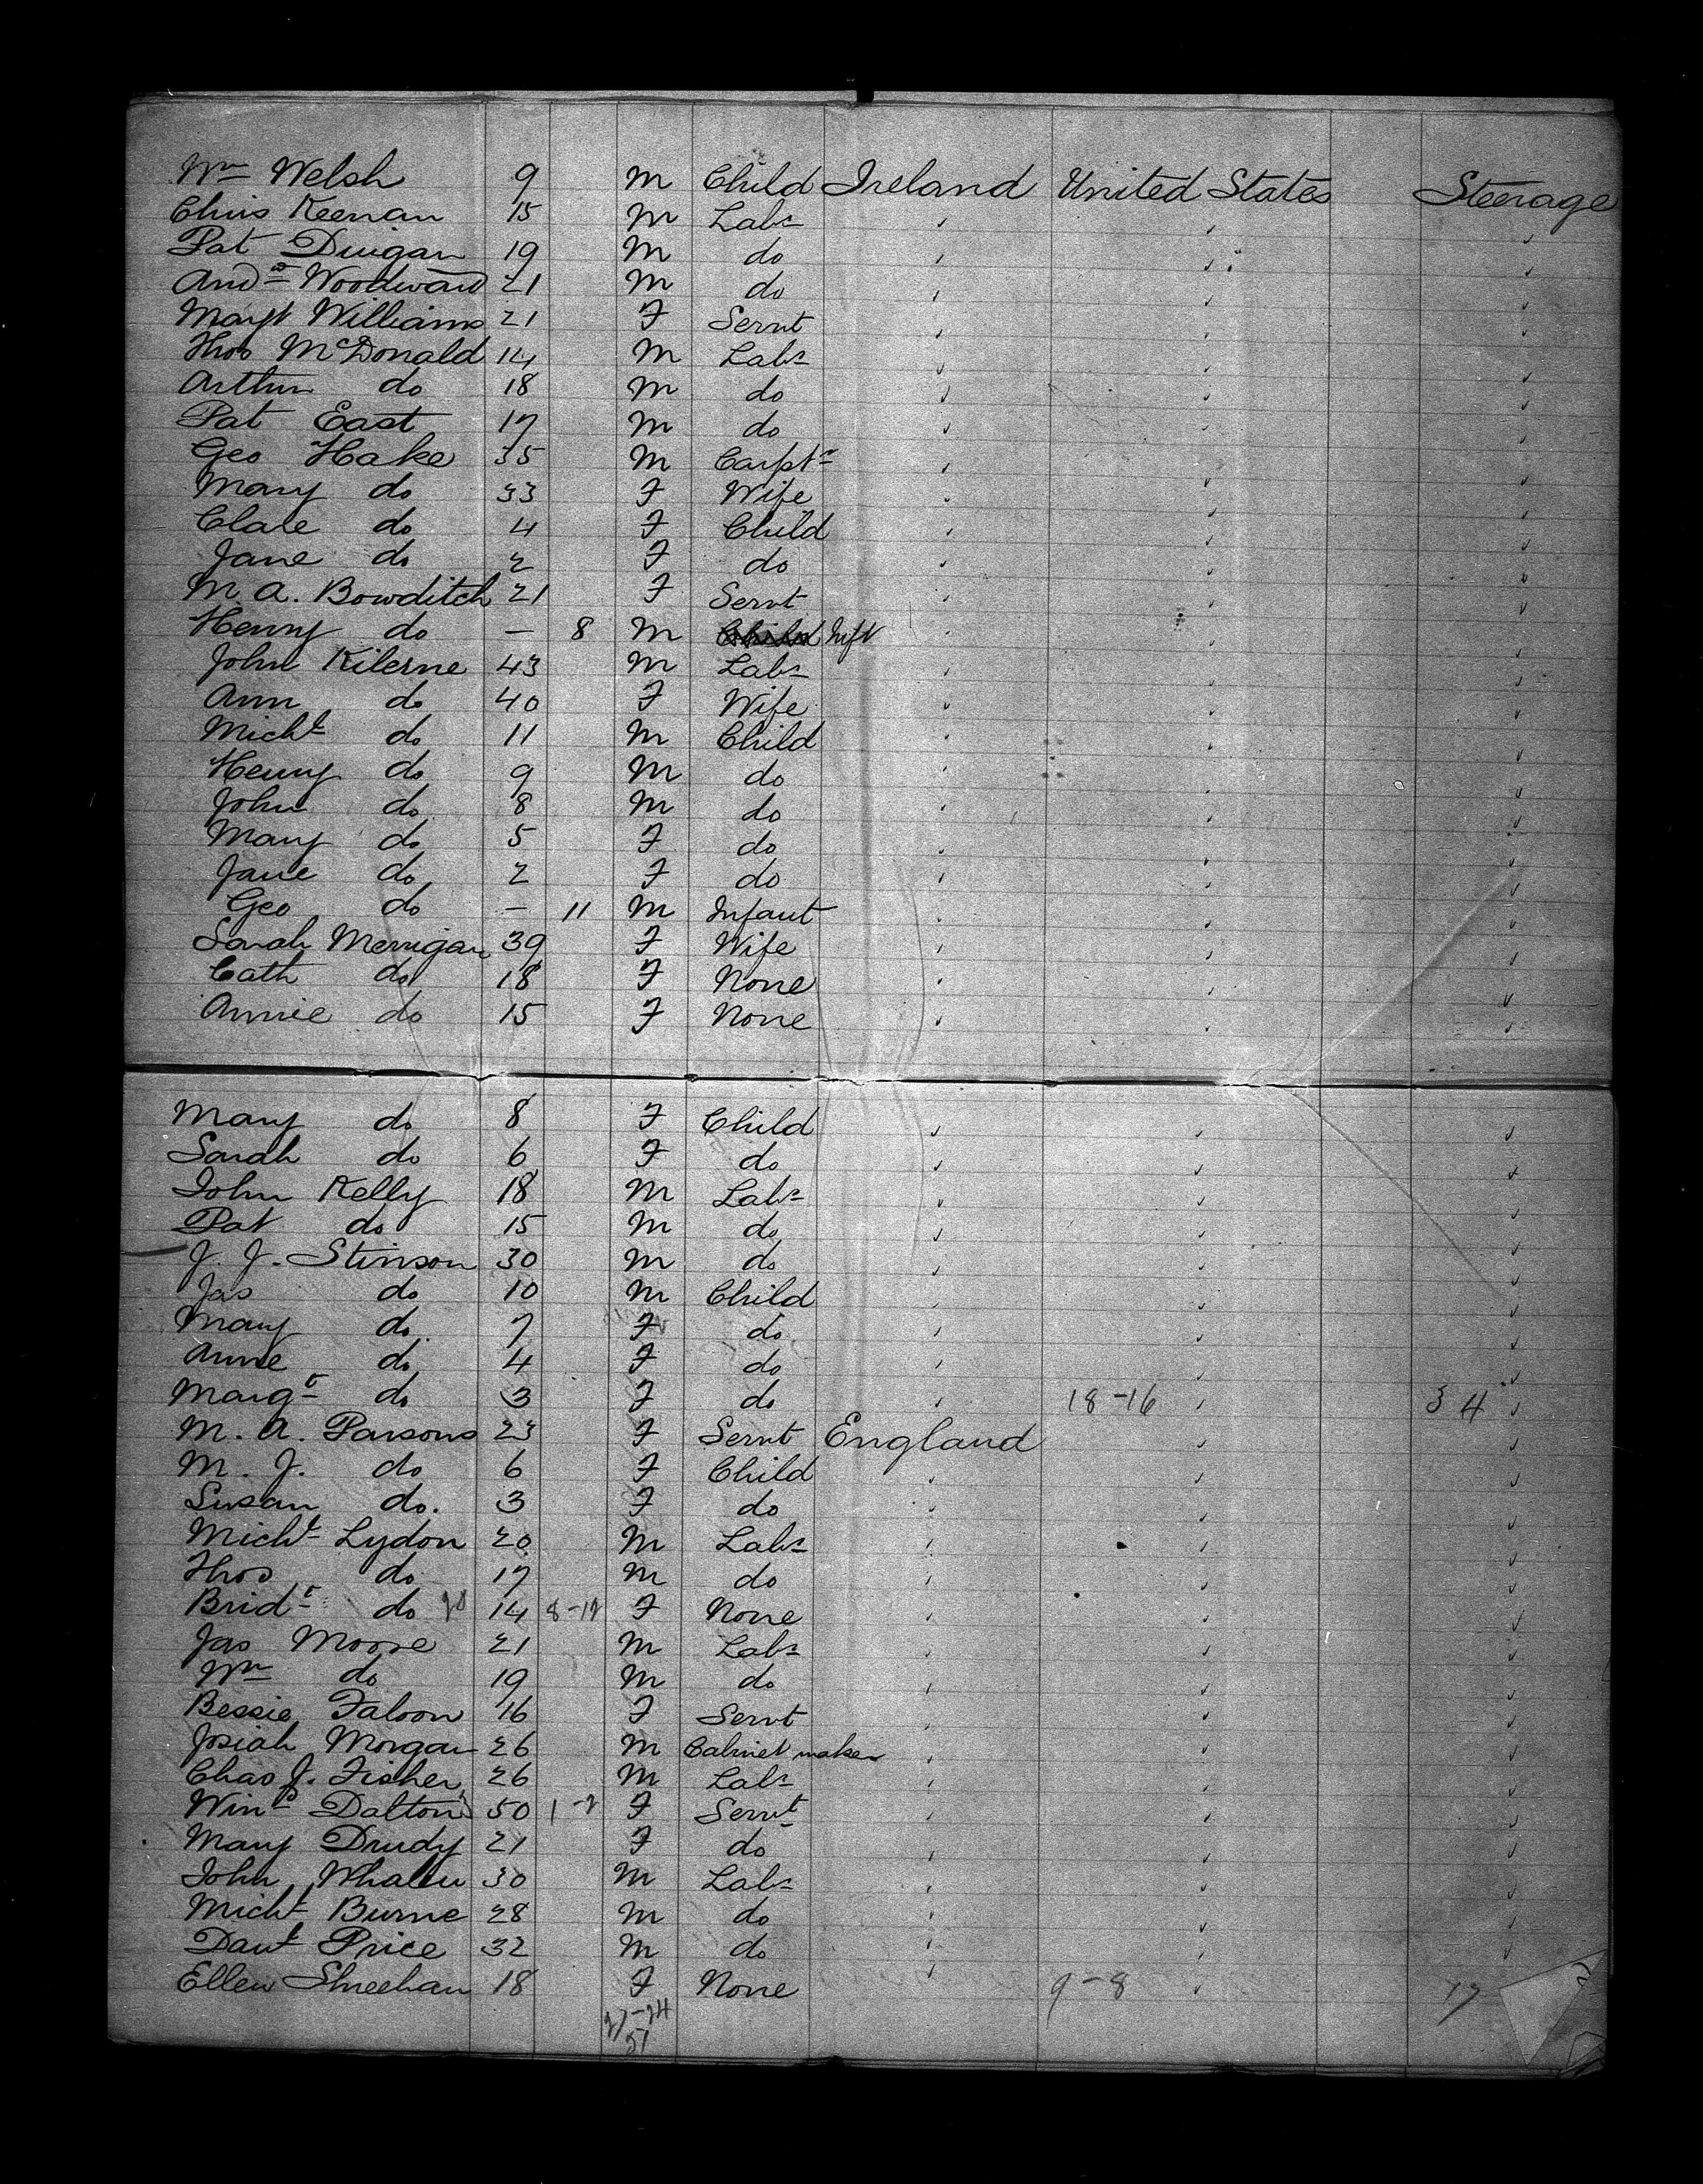 Wm Welsh 9 M Child Ireland United States Steerage
Chris Keenan 15 M Labr
Pat Duigan 19 M do
Andw Woodward 21 M do
Margt Williams 21 F Servt
Thos McDonald 14 M Labr
Arthur do 18 M do
Pat East 17 M do
Geo Hake 35 M Carptr
Mary do 33 F Wife
Clare do 4 F Child
Jane do 2 F do
M A. Bowditch 21 F Servt
Henry do — 8 M Child Inft
John Kilerne 43 M Labr
Ann do 40 F Wife
Michl do 11 M Child
Henry do 9 M do
John do 8 M do
Mary do 5 F do
Jane do 2 F do
Geo do — 11 M Infant
Sarah Merrigan 39 F Wife
Cath do 18 F None
Annie do 15 F None
Mary do 8 F Child
Sarah do 6 F do
John Kelly 18 M Labr
Pat do 15 M do
J. J. Stinson 30 M do
Jas do 10 M Child
Mary do 7 F do
Anne do 4 F do
Margt do 3 F do 18-16 34
M. A. Parsons 23 F Servt England
M. J. do 6 F Child
Susan do. 3 F do
Michl Lydon 20 M Labr
Thos do 17 M do
Bridt do 14 8-12 F None
Jas Moore 21 M Labr
Wm do 19 M do
Bessie Faloon 16 F Servt
Josiah Morgan 26 M Cabinet maker
Chas J. Fisher 26 M Labr
Wind Dalton 50 1-2 F Servt
Mary Drudy 21 F do
John Whalen 30 M Labr
Michl Burne 28 M do
Danl Price 32 M do
Ellen Sheehan 18 F None 9-8 17
27-24
51